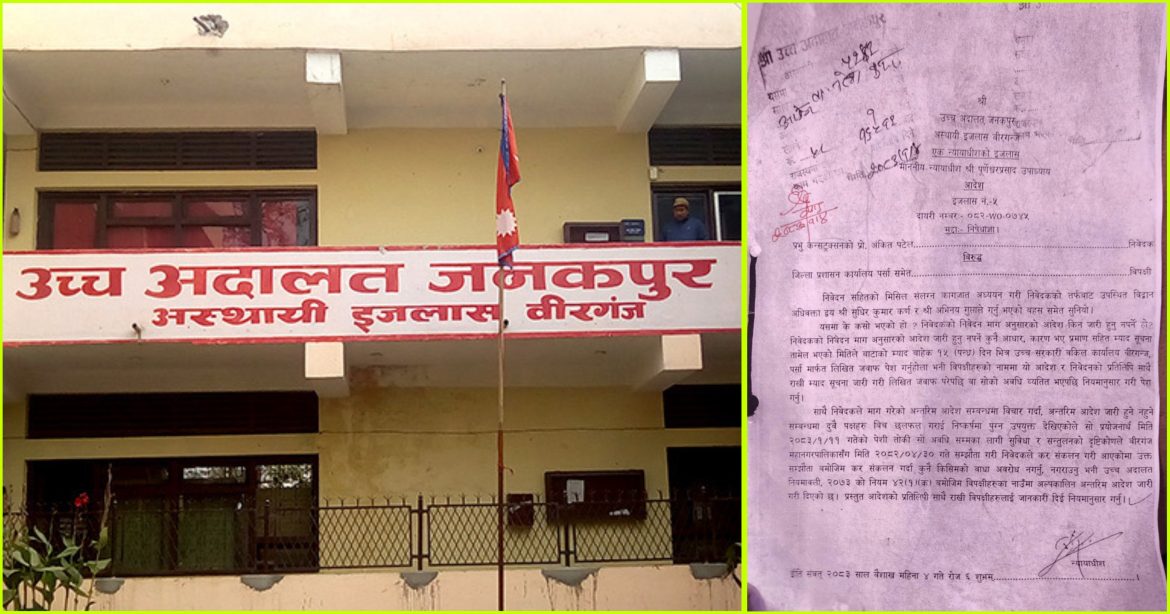 उच्च अदालत जनकपुर
अस्थायी इजलास वीरगंज
श्री
उच्च अदालत जनकपुर
अस्थायी इजलास वीरगन्ज
एक न्यायाधीशको इजलास
माननीय न्यायाधीश श्री पूर्णेश्वरप्रसाद उपाध्याय
आदेश
इजलास नं.-५
दायरी नम्बर - ०८२-WO-०७४५
मुद्दाः- निषेधाज्ञा।
प्रभु कन्सट्रक्सनको प्रो. अंकित पटेल निवेदक
विरुद्ध
जिल्ला प्रशासन कार्यालय पर्सा समेत विपक्षी
निवेदन सहितको मिसिल संलग्न कागजात अध्ययन गरी निवेदकको तर्फबाट उपस्थित विद्वान
अधिवक्ता द्वय श्री सुधिर कुमार कर्ण र श्री अभिनय गुप्ताले गर्नु भएको बहस समेत सुनियो।
यसमा के कसो भएको हो ? निवेदकको निवेदन माग अनुसारको आदेश किन जारी हुनु नपर्ने हो?
निवेदकको निवेदन माग अनुसारको आदेश जारी हुनु नपर्ने कुनै आधार, कारण भए प्रमाण सहित म्याद सूचना
तामेल भएको मितिले बाटाको म्याद बाहेक १५ (पन्ध्र) दिन भित्र उच्च सरकारी वकिल कार्यालय वीरगन्ज,
पर्सा मार्फत लिखित जवाफ पेश गर्नुहोला भनी विपक्षीहरुको नाममा यो आदेश र निवेदनको प्रतिलिपि साथै
राखी म्याद सूचना जारी गरी लिखित जवाफ परेपछि वा सोको अवधि व्यतित भएपछि नियमानुसार गरी पेश
गर्नु।
साथै निवेदकले माग गरेको अन्तरिम आदेश सम्बन्धमा विचार गर्दा, अन्तरिम आदेश जारी हुने नहुने
सम्बन्धमा दुवै पक्षहरु बिच छलफल गराई निष्कर्षमा पुग्न उपयुक्त देखिएकोले सो प्रयोजनार्थ मिति
२०८३/१/११ गतेको पेशी तोकी सो अवधि सम्मका लागी सुविधा र सन्तुलनको दृष्टिकोणले वीरगंज
महानगरपालिकासँग मिति २०८२/०४/३० गते सम्झौता गरी निवेदकले कर संकलन गरी आएकोमा उक्त
सम्झौता बमोजिम कर संकलन गर्दा कुनै किसिमको बाधा अवरोध नगर्नु, नगराउनु भनी उच्च अदालत
नियमावली, २०७३ को नियम ४२(१)(क) बमोजिम विपक्षीहरुका नाउँमा अल्पकालिन अन्तरिम आदेश जारी
गरी दिएको छ। प्रस्तुत आदेशको प्रतिलिपी साथै राखी विपक्षीहरुलाई जानकारी दिई नियमानुसार गर्नु।
न्यायाधीश
इति संवत् २०८३ साल बैशाख महिना ४ गते रोज ६ शुभम्